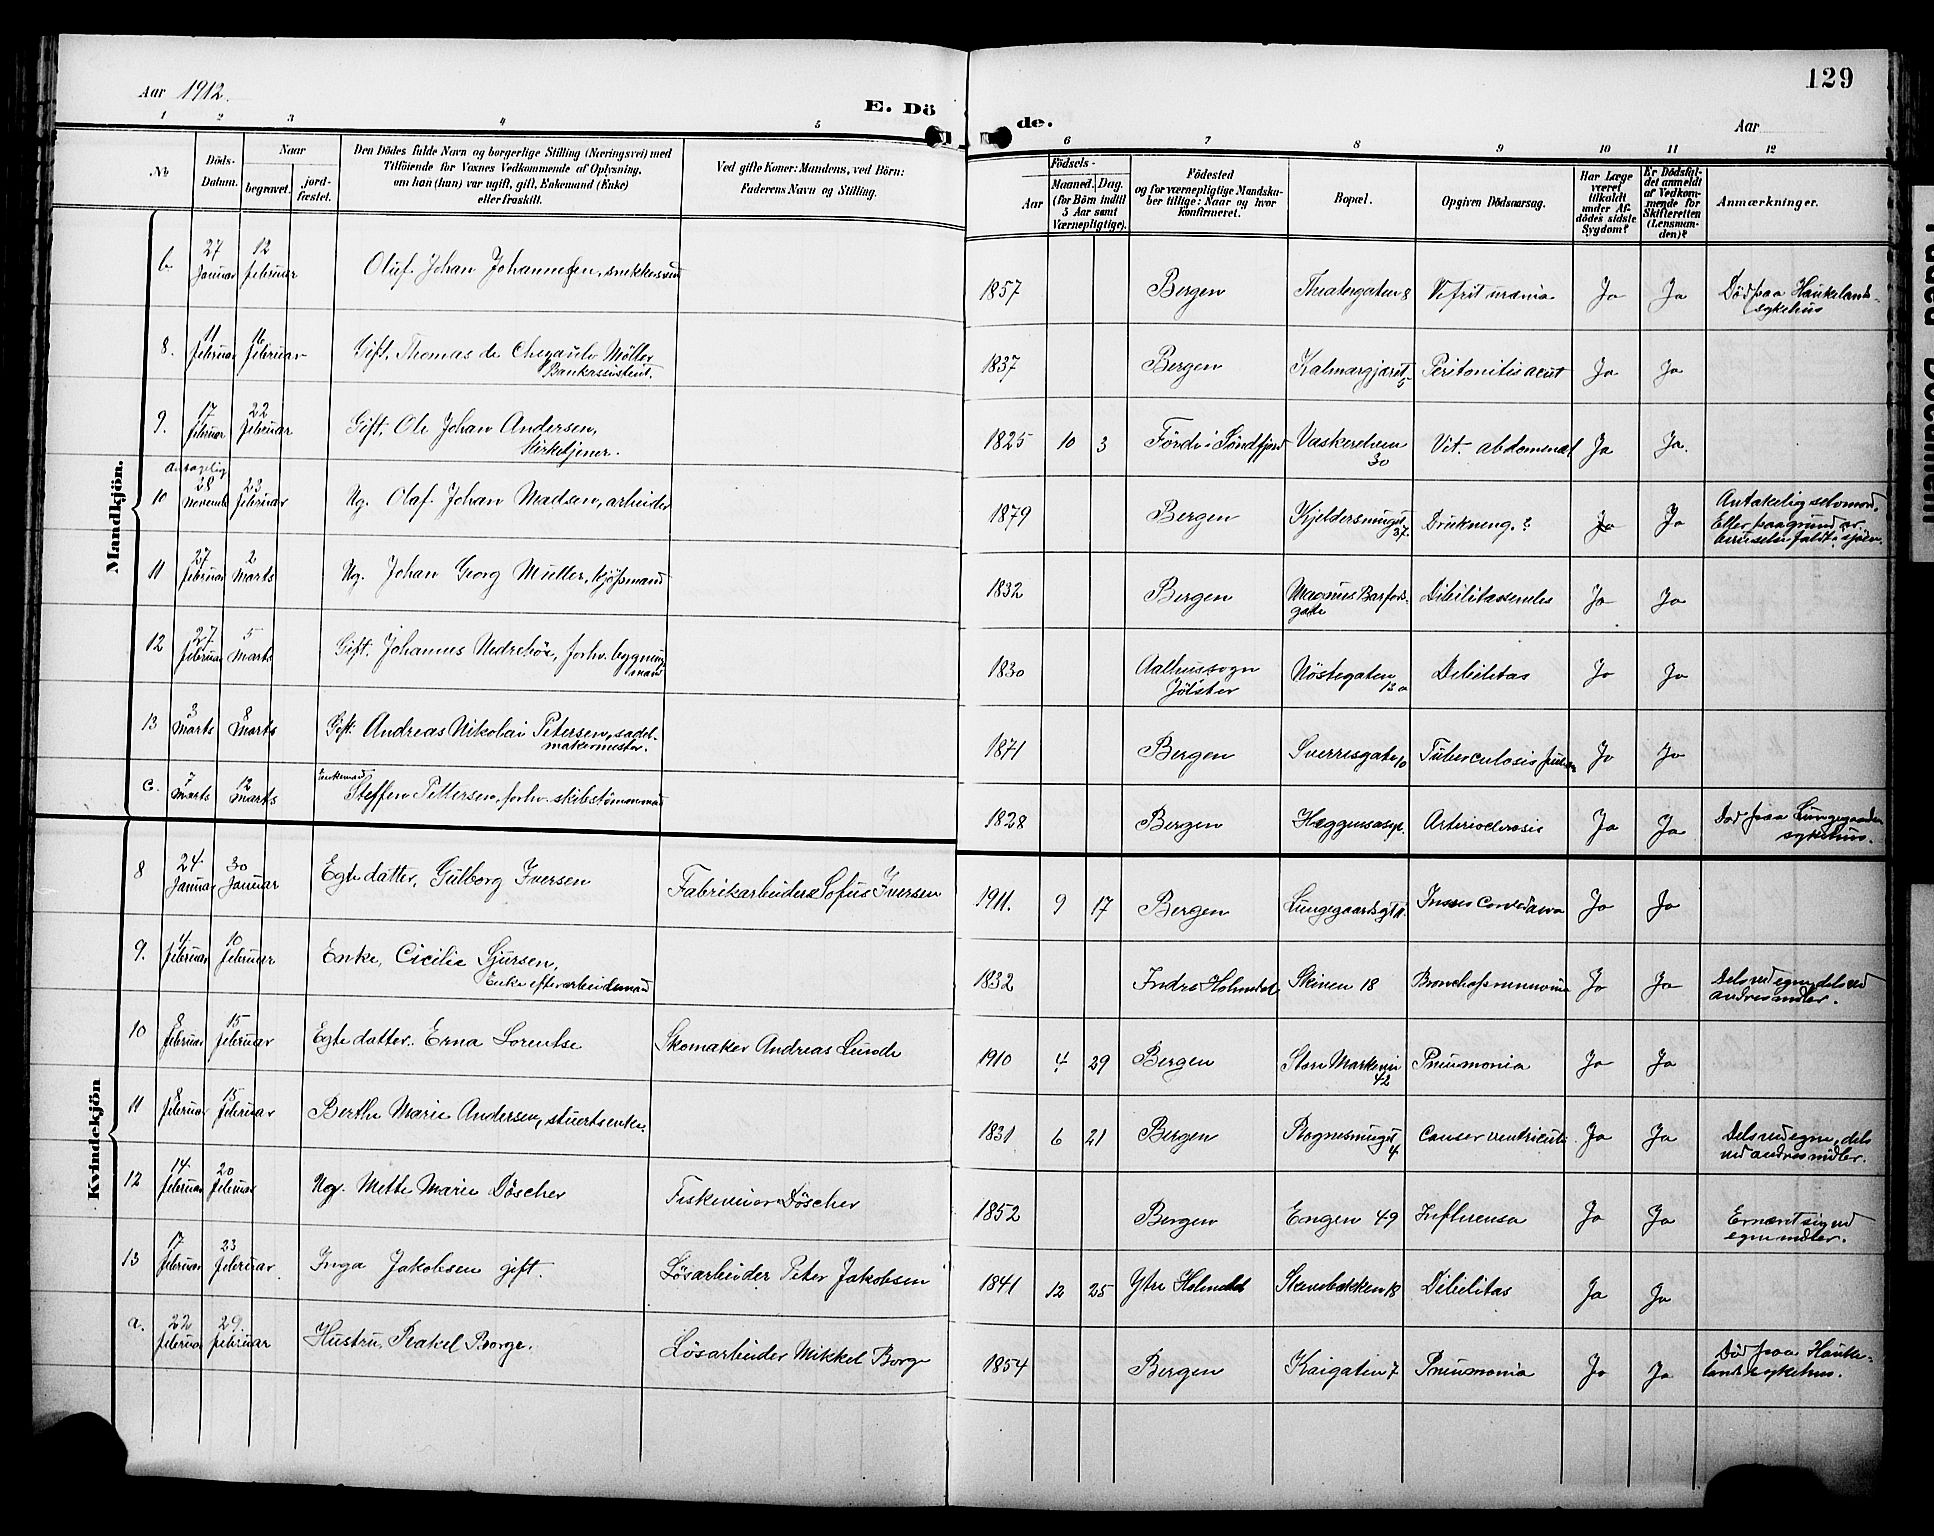 Aar 1912.
E. Dö
de.
129
Aar
1 2 3 4 5
6 7 8 9 10 11 12
No
Döds-Datum.
Naar
begravet.
jord-fæstet.
Den Dödes fulde Navn og borgerlige Stilling (Næringsvei) med
Tilföiende for Voxnes Vedkommende af Oplysning,
om han (hun) var ugift, gift, Enkemand (Enke)
eller fraskilt.
Ved gifte Koner: Mandens, ved Börn:
Faderens Navn og Stilling.
Födsels-
Aar
Maaned. Dag.
(for Börn indtil
5 Aar samt
Værnepligtige).
Födested
og for værnepligtige Mandska-
ber tillige: Naar og hvor
konfirmeret.
Bopæl.
Opgiven Dödsaarsag.
Har Læge
været
tilkaldt
under Af-
dödes sidste
Sygdom?
Er Dödsfal-
det anmeldt
af Vedkom-
mende for
Skifteretten
(Lensman-
den)?
Anmærkninger.
Mandkjön.
b. 27 Januar 12 februar Oluf Johan Johannesen, snekkersvend 1857 Bergen Theatergaten 8 Ja Ja Död paa Haukeland sykehus
8. 11 februar 16 februar Gift, Thomas de Møller Bankassistent. 1837 Bergen Kalmargjaret 5 Peritonitis acut Ja Ja
9. 17 februar 22 februar Gift, Ole Johan Andersen, Kirketjener. 1825 10 3 Förde i Söndfjord Vaskerelven 30 Vit. abdomenal Ja Ja.
10 28 November 23 februar Ug. Olaf Johan Madsen, arbeider 1879 Bergen Kjeldersmuget 37. Drukning? Ja Ja Antakelig selvmord, Eller paa grund av beruselse faldt i sjöen.
11 27 februar 2 Marts Ug. Johan Georg Muller, kjöpmand 1832 Bergen Magnus Barfods gate Ja Ja
12 27. februar 5 Marts Gift. Johannes forhv. bygningsmand 1830 Aalhus sogn Jölster Nöstegaten 13a Debilitas Ja Ja
13 3 Marts 8 Marts Gift. Andreas Nikolai Petersen, sadelmakermester. 1871 Bergen Sverresgate 10 Tuberculosis pulm Ja Ja
c. 7 Marts 12 Marts Enkemand Steffen Pettersen, forhv. skibstömmermand 1828 Bergen Arteriosclerosis Ja Ja Död paa Lungegaarden sykehus.
Kvindekjön
8 24. Januar 30 Januar Egte datter, Gulborg Iversen Fabrikarbeider Sofus Iversen 1911. 9 17 Bergen Lungegaardsgt Ja Ja
9. 4. februar 10 februar Enke, Cicilie Sjursen, Enke efter arbeidsmand 1832 Indre Holmedal Skiven 18 Bronchopneumonie Ja Ja Dels ved egne, dels ved andres midler.
10 8 februar 15 februar Egte datter. Erna Lorentse Skomaker Andreas Lunde 1910 4 29 Bergen Store Markevei 42 Pneumonia Ja Ja
11 8 februar 15 februar Berthe Marie Andersen, stuertsenke. 1831 6 21 Bergen Rognesmuget 4 Canser ventriculi Ja Ja Dels ved egne, dels ved andres midler.
12 14. februar 20 februar Ug. Mette Marie Döscher Döscher 1852 Bergen Engen 49 Influensa Ja Ja Ernæret sig ved egne midler.
13 17 februar 23 februar Inga Jakobsen gift. Lösarbeider Peter Jakobsen 1841 12 25 Ytre Holmedal Skivebakken 18 Debilitas Ja Ja
a. 22 februar 29. februar Hustru, Rakel Borge. Lösarbeider Mikkel Borge 1854 Bergen Kaigaten 7 Pneumonia Ja Ja Död paa Haukelands sykehus.